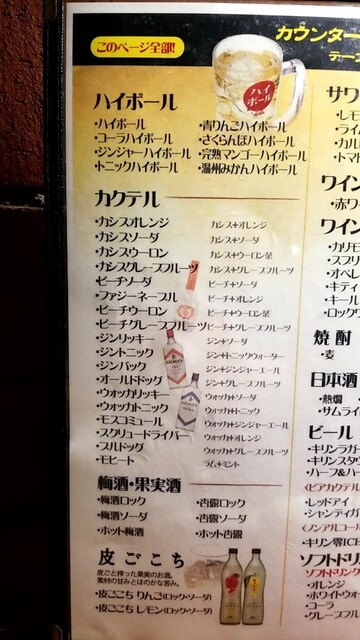 このページ全部!
カウンター
テー
ハイボール
ハイボール
・ハイボール ・青りんごハイボール
・コーラハイボール ・さくらんぼハイボール
・ジンジャーハイボール ・完熟マンゴーハイボール
・トニックハイボール ・温州みかんハイボール
カクテル
・カシスオレンジ カシス+オレンジ
・カシスソーダ カシス+ソーダ
・カシスウーロン カシス+ウーロン茶
・カシスグレープフルーツ カシス+グレープフルーツ
・ピーチソーダ ピーチ+ソーダ
・ファジーネーブル ピーチ+オレンジ
・ピーチウーロン ピーチ+ウーロン茶
・ピーチグレープフルーツ ピーチ+グレープフルーツ
・ジンリッキー ジン+ソーダ
・ジントニック ジン+トニックウォーター
・ジンバック ジン+ジンジャーエール
・オールドドッグ ジン+グレープフルーツ
・ウォッカリッキー ウォッカ+ソーダ
・ウォッカトニック ウォッカ+トニック
・モスコミュール ウォッカ+ジンジャーエール
・スクリュードライバー ウォッカ+オレンジ
・ブルドッグ ウォッカ+グレープフルーツ
・モヒート ラム+ミント
梅酒・果実酒
・梅酒ロック ・杏露ロック
・梅酒ソーダ ・杏露ソーダ
・ホット梅酒 ・ホット杏露
皮ごこち
皮ごと搾った果実のお酒。
素材の甘みとほのかな苦み。
・皮ごこち りんご(ロック・ソーダ)
・皮ごこち レモン(ロック・ソーダ)
サワ
・レモ
・ライム
・カル
・トマ
ワイン
・赤ワ
ワイン
・カリモ
・スプリ
・オペレ
・キティ
・キール
・ロックワ
焼酎
・麦
日本酒
・熱燗
・サムライ
ビール
・キリンラガー
・キリンスタウ
・ハーフ&ハー
〈ビアカクテル
・レッドアイ
・シャンディガ
〈ノンアルコール
・キリン零(ICH
ソフトドリン
ソフトドリンク
・オレンジ
・ホワイトウォー
・コーラ
・グレープフル